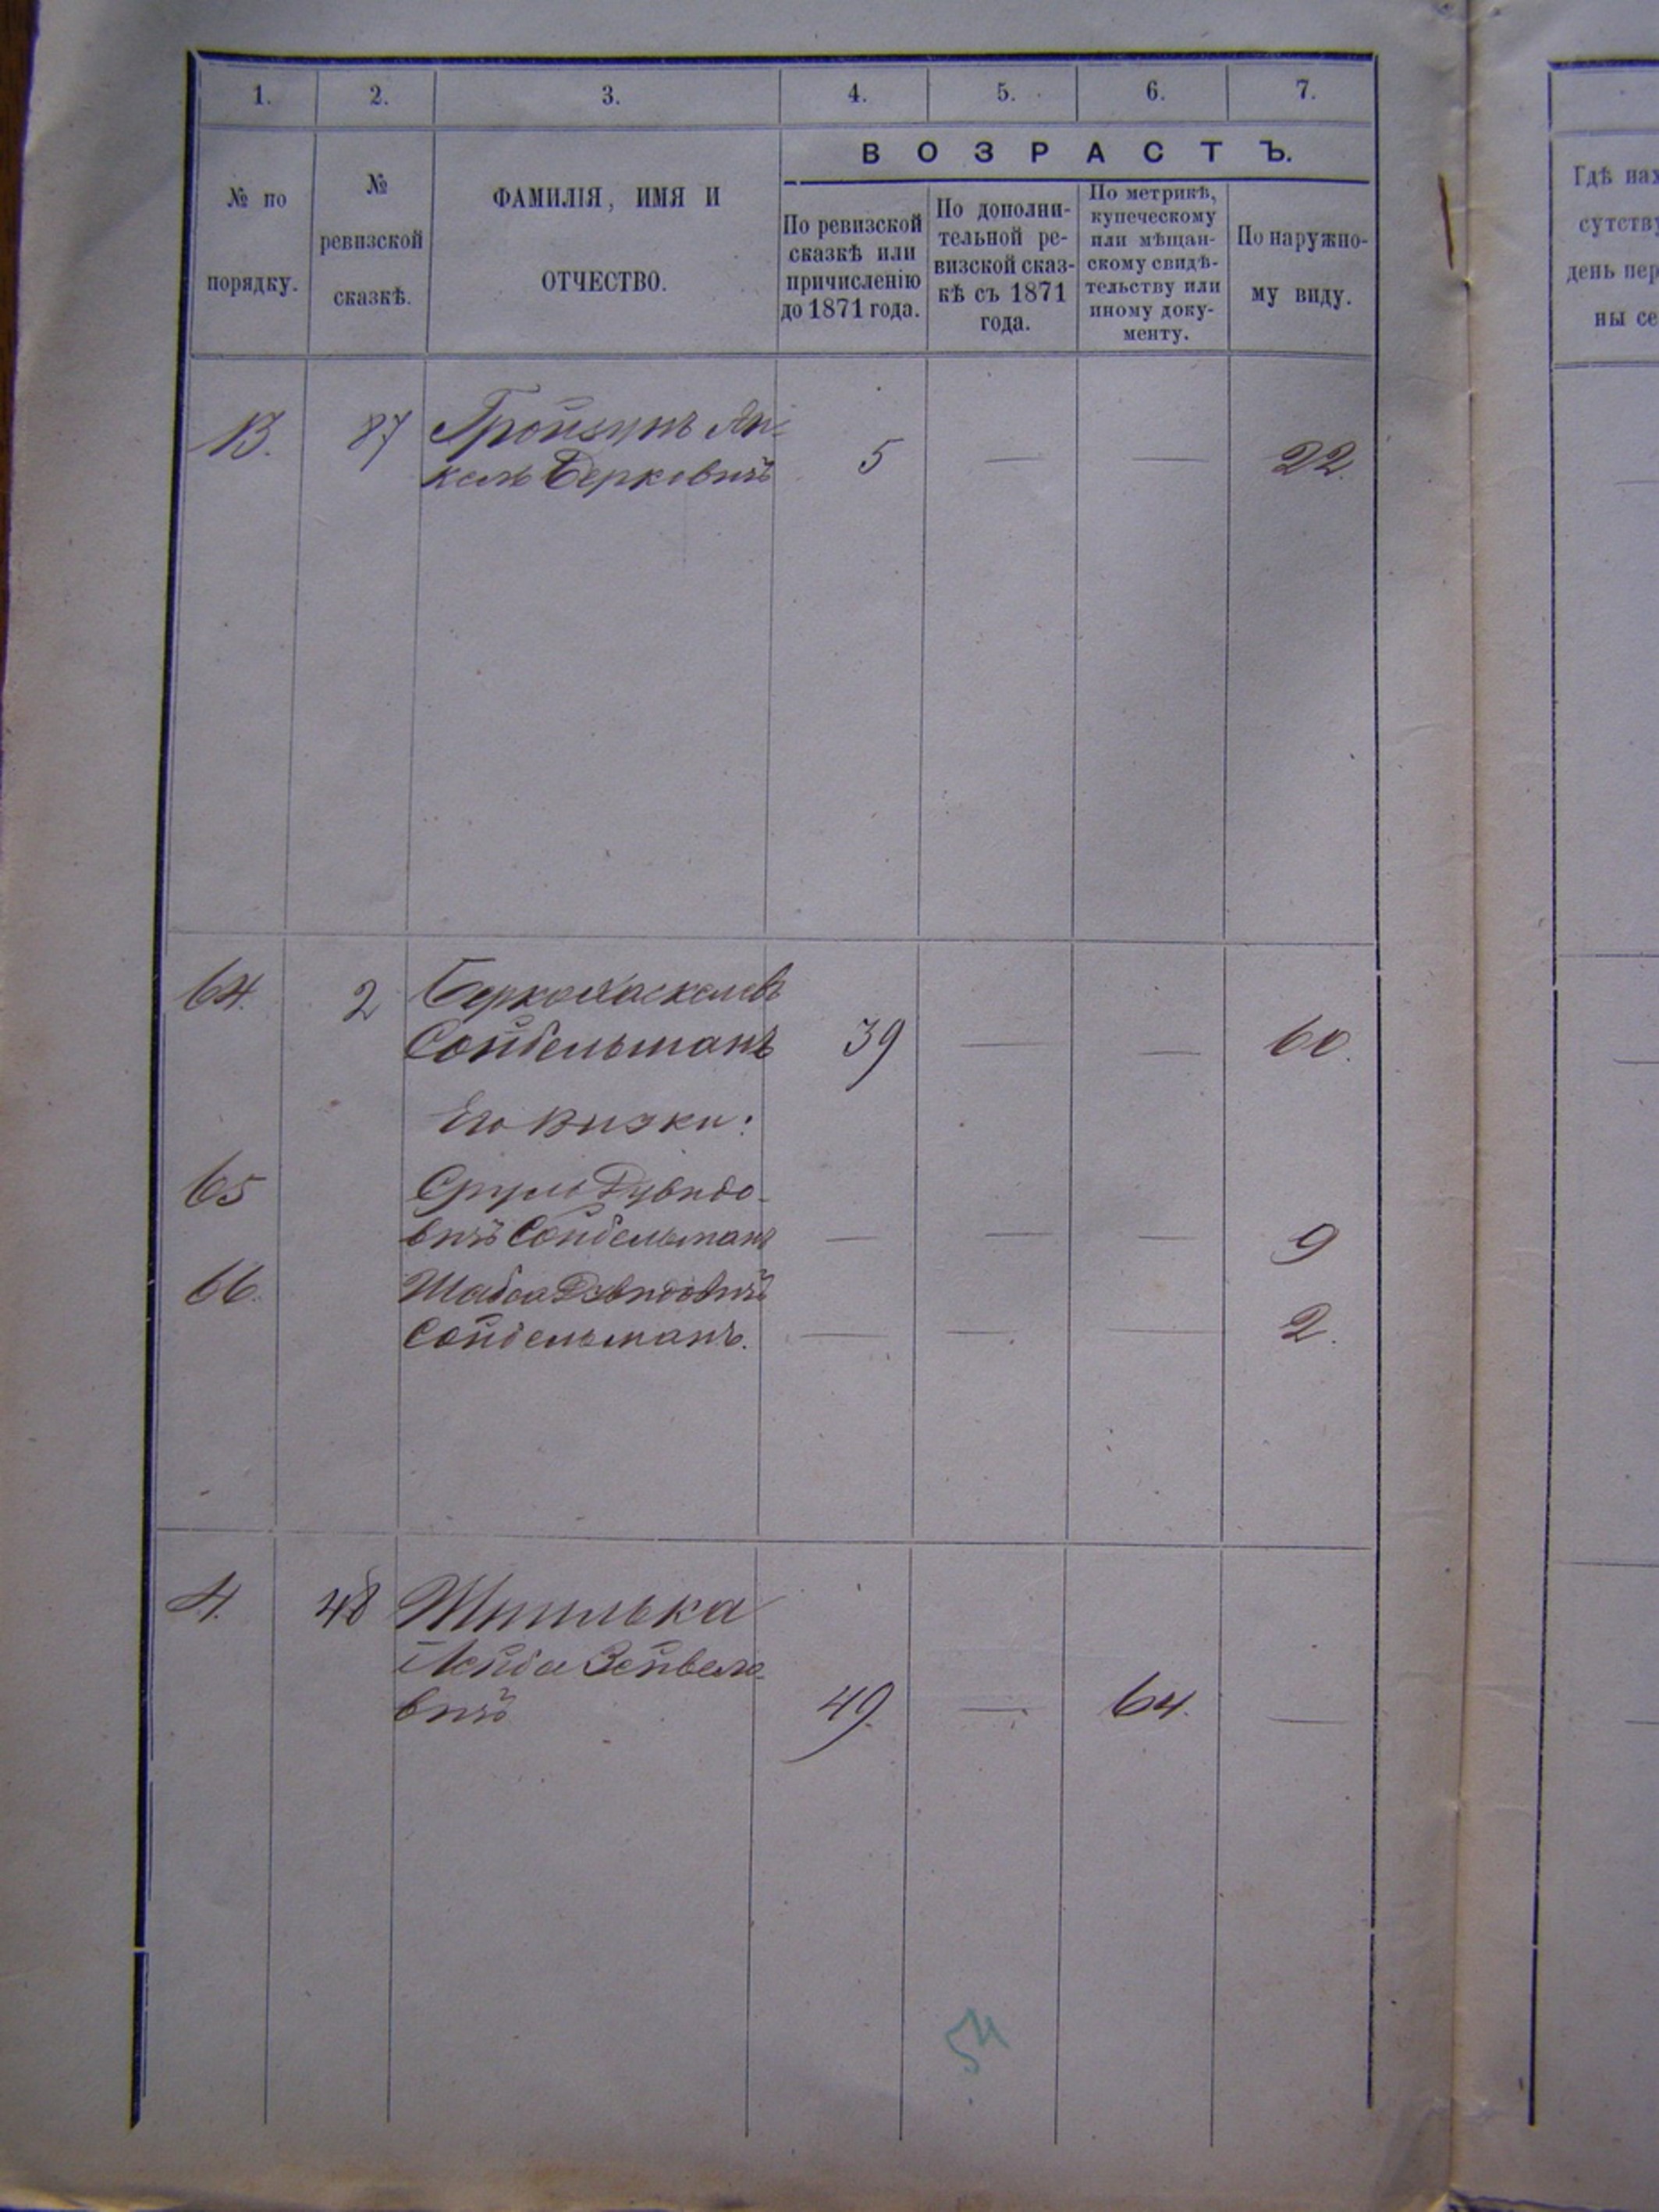 1. 2. 3. 4. 5. 6. 7.
ВОЗРАСТЪ.
№ по
порядку.
№
ревизской
сказкѣ.
ФАМИЛІЯ, ИМЯ И
ОТЧЕСТВО.
По ревизской
сказкѣ или
причисленію
до 1871 года.
По дополни-
тельной ре-
визской сказ-
кѣ съ 1871
года.
По метрикѣ,
купеческому
или мѣщан-
скому свидѣ-
тельству или
иному доку-
менту.
По наружно-
му виду.
13. 87 Гройзунъ Ян-
кель Берковичъ 5 — — 22.
64. 2 Берко Хаскелевъ
Сойбельманъ 39 — — 60.
Его внуки:
65 Сруль Дувидо-
вичъ Сойбельманъ — — — 9
66. Шабса Дувидовичъ
Сойбельманъ. — — — 2.
4. 48 Шпилька
Лейба Зейвело-
вичъ 49. — 64. —
Гдѣ нах
сутству
день пер
ны се